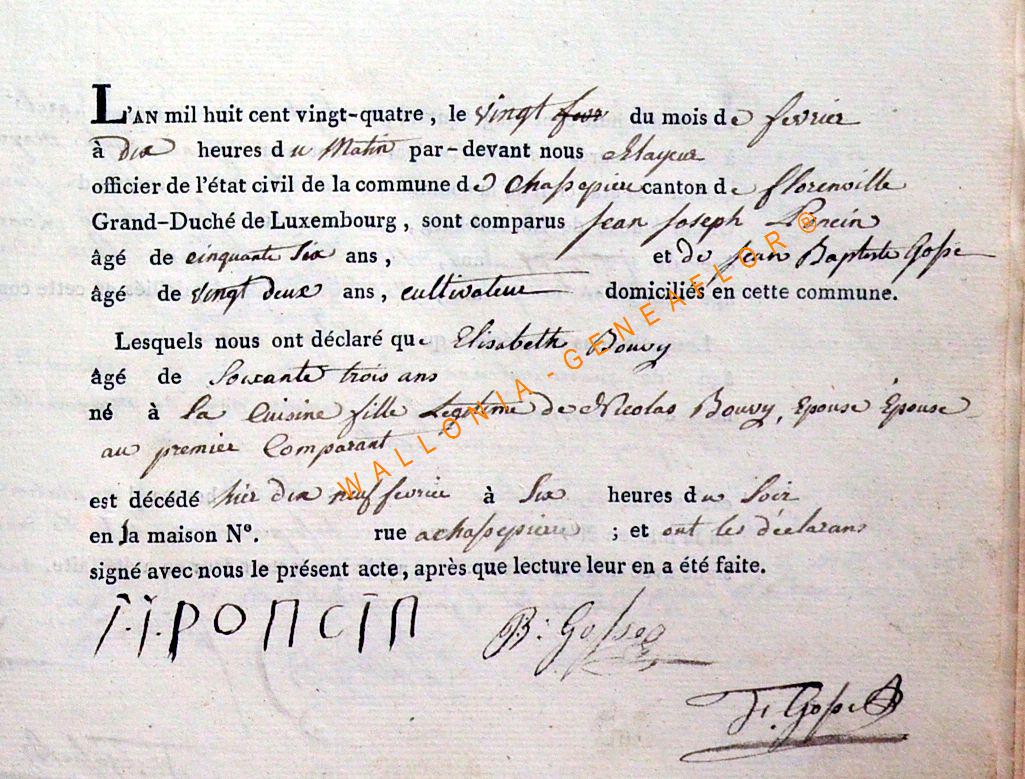 L'AN mil huit cent vingt-quatre, le vingt du mois de fevrier
à dix heures du Matin par-devant nous
officier de l'état civil de la commune de Chassepierre canton de florenville
Grand-Duché de Luxembourg, sont comparus Jean Joseph Poncin
âgé de cinquante Six ans, et de Jean Baptiste Gosse
âgé de vingt deux ans, cultivateur domiciliés en cette commune.
Lesquels nous ont déclaré que Elisabeth Bouvy
âgé de Soixante trois ans
né à la Cuisine fille Legitime de Nicolas Bouvy, Epouse Epouse
au premier Comparant
est décédé hier dix neuf fevrier à Six heures du Soir
en la maison N°. rue a chassepierre ; et ont les déclarans
signé avec nous le présent acte, après que lecture leur en a été faite.
J.J. PONCIN B: Gosse
Gosse
WALLONIA-GENEAELOR®